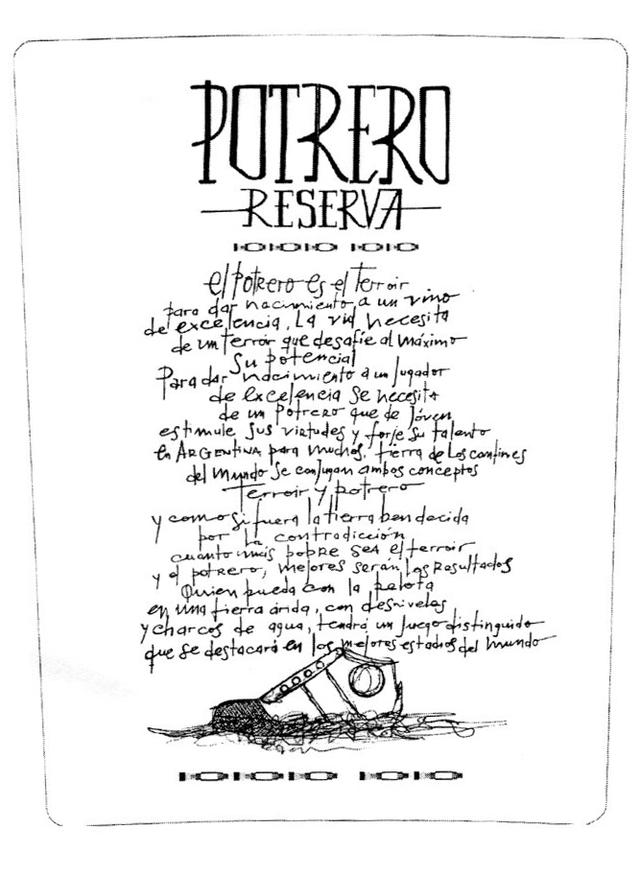 POTRERO
RESERVA
el potrero es el terroir
para dar nacimiento a un vino
de excelencia, La vid necesita
de un terroir que desafíe al máximo
su potencial
Para dar nacimiento a un jugador
de excelencia se necesita
de un potrero que de jóven
estimule sus virtudes y forje su talento
en ARGENTINA para muchos, tierra de los confines
del mundo se conjugan ambos conceptos
Terroir y potrero
y como si fuera la tierra bendecida
por la contradicción
cuanto más pobre sea el terroir
y el potrero, mejores serán los resultados
Quien pueda con la pelota
en una tierra árida, con desniveles
y charcos de agua, tendrá un juego distinguido
que se destacará en los mejores estadios del mundo